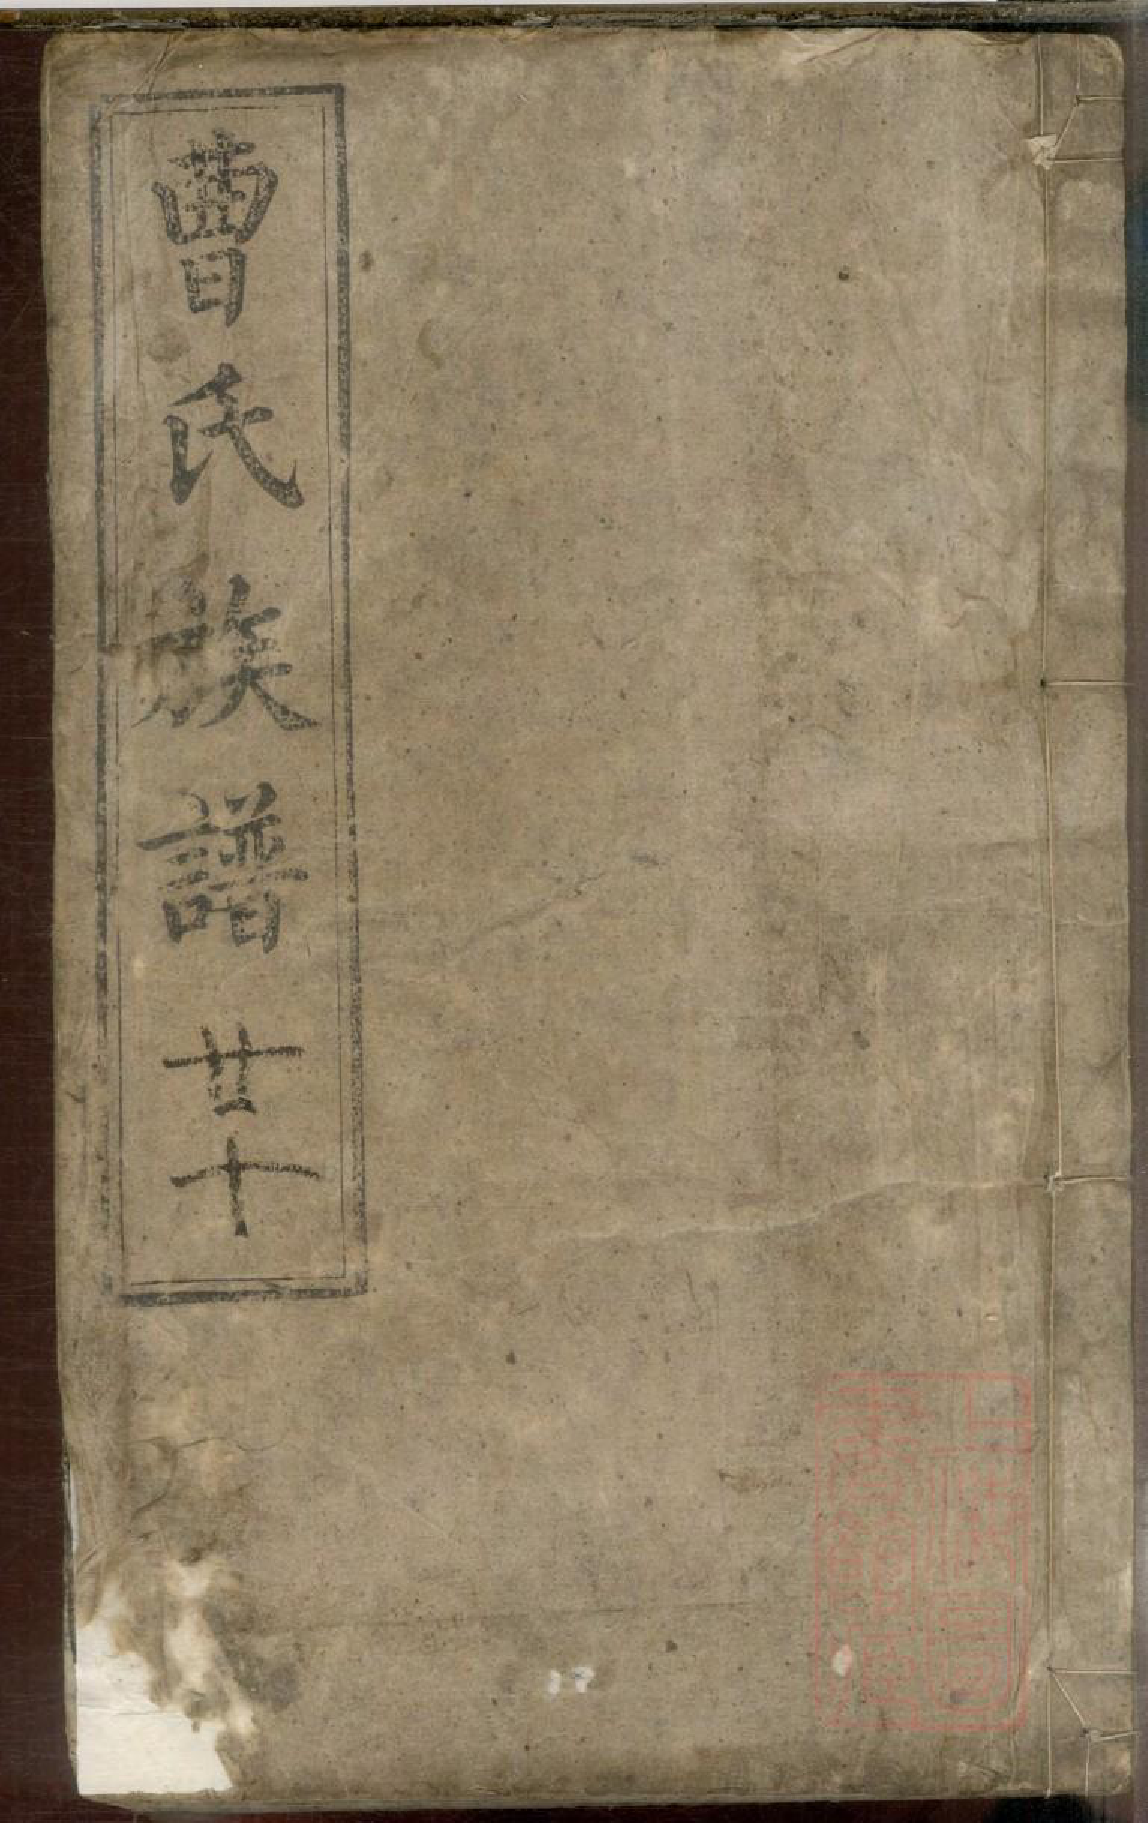 曹氏族譜廿十